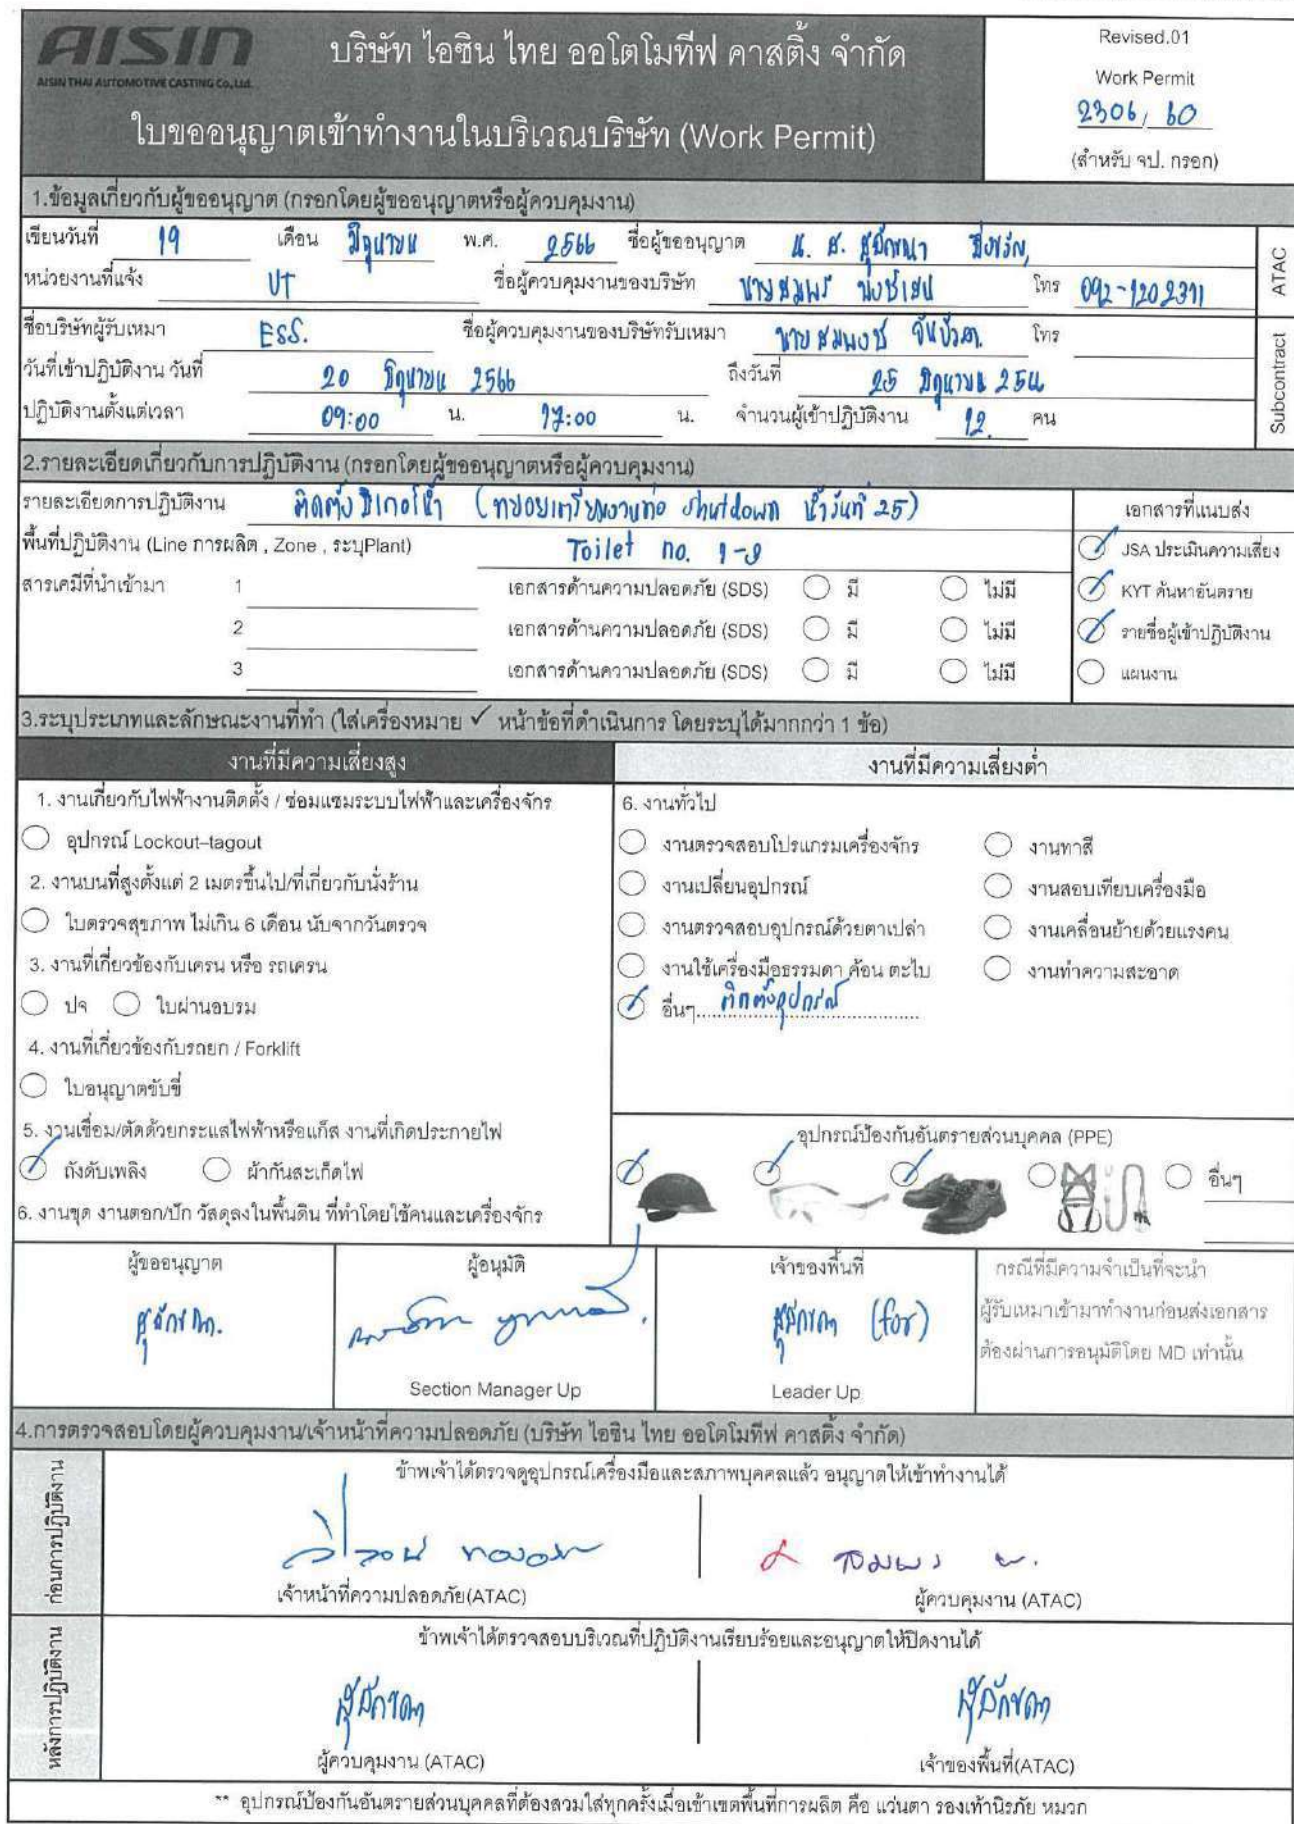 AISIN
AISIN THAI AUTOMOTIVE CASTING Co., Ltd.
บริษัท ไอซิน ไทย ออโตโมทีฟ คาสติ้ง จำกัด
ใบขออนุญาตเข้าทำงานในบริเวณบริษัท (Work Permit)
Revised.01
Work Permit
2306, 60
(สำหรับ จป. กรอก)
1.ข้อมูลเกี่ยวกับผู้ขออนุญาต (กรอกโดยผู้ขออนุญาตหรือผู้ควบคุมงาน)
เขียนวันที่ 19 เดือน มิถุนายน พ.ศ. 2566 ชื่อผู้ขออนุญาต น. ส.
หน่วยงานที่แจ้ง UT ชื่อผู้ควบคุมงานของบริษัท นายสมพร โทร 092-1202311
ATAC
ชื่อบริษัทผู้รับเหมา ESS. ชื่อผู้ควบคุมงานของบริษัทรับเหมา นายสมพงษ์ โทร
วันที่เข้าปฏิบัติงาน วันที่ 20 มิถุนายน 2566 ถึงวันที่ 25 มิถุนายน
ปฏิบัติงานตั้งแต่เวลา 09:00 น. 17:00 น. จำนวนผู้เข้าปฏิบัติงาน 12. คน
Subcontract
2.รายละเอียดเกี่ยวกับการปฏิบัติงาน (กรอกโดยผู้ขออนุญาตหรือผู้ควบคุมงาน)
รายละเอียดการปฏิบัติงาน ติดตั้งมิเตอร์น้ำ (ทยอยเตรียมงานท่อ shutdown น้ำวันที่ 25)
พื้นที่ปฏิบัติงาน (Line การผลิต , Zone , ระบุPlant) Toilet no. 1-9
สารเคมีที่นำเข้ามา 1 เอกสารด้านความปลอดภัย (SDS) มี ไม่มี
2 เอกสารด้านความปลอดภัย (SDS) มี ไม่มี
3 เอกสารด้านความปลอดภัย (SDS) มี ไม่มี
เอกสารที่แนบส่ง
JSA ประเมินความเสี่ยง
KYT ค้นหาอันตราย
รายชื่อผู้เข้าปฏิบัติงาน
แผนงาน
3.ระบุประเภทและลักษณะงานที่ทำ (ใส่เครื่องหมาย ✓ หน้าข้อที่ดำเนินการ โดยระบุได้มากกว่า 1 ข้อ)
งานที่มีความเสี่ยงสูง
1. งานเกี่ยวกับไฟฟ้างานติดตั้ง / ซ่อมแซมระบบไฟฟ้าและเครื่องจักร
อุปกรณ์ Lockout–tagout
2. งานบนที่สูงตั้งแต่ 2 เมตรขึ้นไป/ที่เกี่ยวกับนั่งร้าน
ใบตรวจสุขภาพ ไม่เกิน 6 เดือน นับจากวันตรวจ
3. งานที่เกี่ยวข้องกับเครน หรือ รถเครน
ปจ ใบผ่านอบรม
4. งานที่เกี่ยวข้องกับรถยก / Forklift
ใบอนุญาตขับขี่
5. งานเชื่อม/ตัดด้วยกระแสไฟฟ้าหรือแก๊ส งานที่เกิดประกายไฟ
ถังดับเพลิง ผ้ากันสะเก็ดไฟ
6. งานขุด งานตอก/ปัก วัสดุลงในพื้นดิน ที่ทำโดยใช้คนและเครื่องจักร
งานที่มีความเสี่ยงต่ำ
6. งานทั่วไป
งานตรวจสอบโปรแกรมเครื่องจักร งานทาสี
งานเปลี่ยนอุปกรณ์ งานสอบเทียบเครื่องมือ
งานตรวจสอบอุปกรณ์ด้วยตาเปล่า งานเคลื่อนย้ายด้วยแรงคน
งานใช้เครื่องมือธรรมดา ค้อน ตะไบ งานทำความสะอาด
อื่นๆ ติดตั้งอุปกรณ์
อุปกรณ์ป้องกันอันตรายส่วนบุคคล (PPE)
อื่นๆ
ผู้ขออนุญาต
ผู้อนุมัติ
Section Manager Up
เจ้าของพื้นที่
(for)
Leader Up
กรณีที่มีความจำเป็นที่จะนำ
ผู้รับเหมาเข้ามาทำงานก่อนส่งเอกสาร
ต้องผ่านการอนุมัติโดย MD เท่านั้น
4.การตรวจสอบโดยผู้ควบคุมงาน/เจ้าหน้าที่ความปลอดภัย (บริษัท ไอซิน ไทย ออโตโมทีฟ คาสติ้ง จำกัด)
ก่อนการปฏิบัติงาน
ข้าพเจ้าได้ตรวจดูอุปกรณ์เครื่องมือและสภาพบุคคลแล้ว อนุญาตให้เข้าทำงานได้
เจ้าหน้าที่ความปลอดภัย(ATAC)
ผู้ควบคุมงาน (ATAC)
หลังการปฏิบัติงาน
ข้าพเจ้าได้ตรวจสอบบริเวณที่ปฏิบัติงานเรียบร้อยและอนุญาตให้ปิดงานได้
ผู้ควบคุมงาน (ATAC)
เจ้าของพื้นที่(ATAC)
** อุปกรณ์ป้องกันอันตรายส่วนบุคคลที่ต้องสวมใส่ทุกครั้งเมื่อเข้าเขตพื้นที่การผลิต คือ แว่นตา รองเท้านิรภัย หมวก